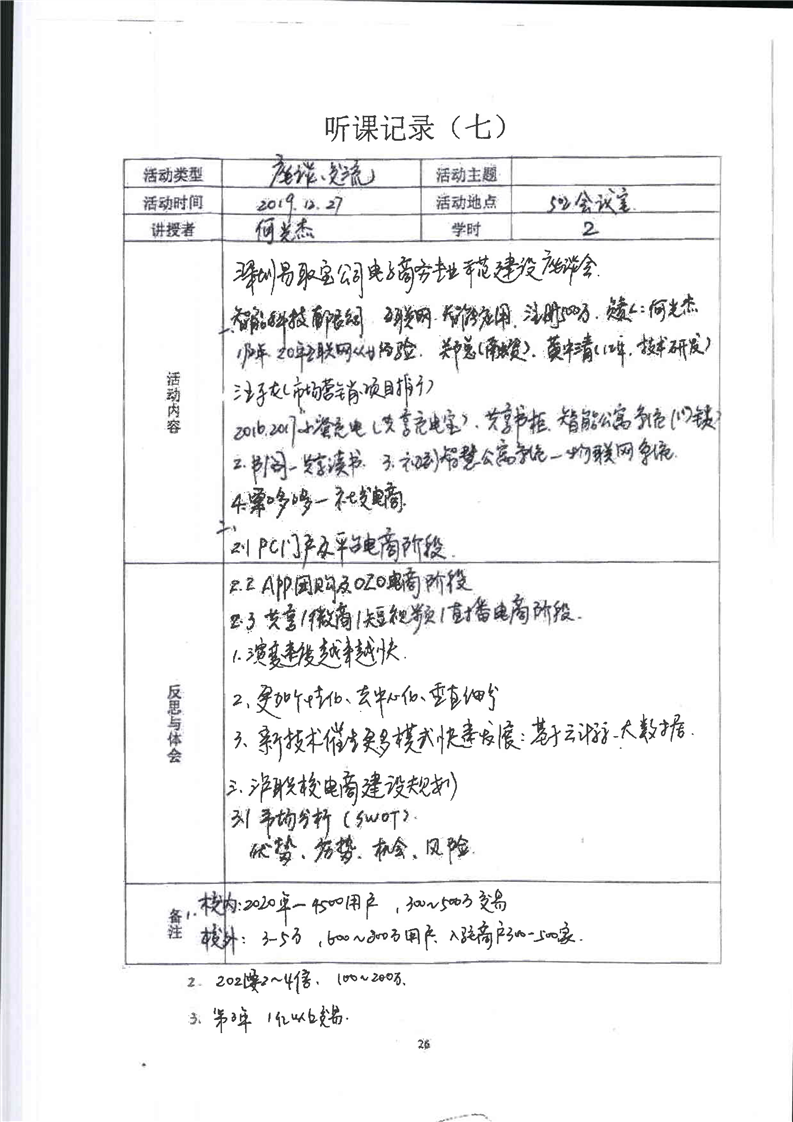 听课记录（七）
活动类型 座谈、交流 活动主题
活动时间 2019.12.27 活动地点 502会议室
讲授者 何光杰 学时 2
活动内容
深圳易取宝公司电子商务专业示范建设座谈会
一、智能科技有限公司 互联网 智能应用 注册500万 何光杰
20年互联网从业经验 郑总 黄中清（12年，技术研发）
汪子龙（市场营销项目推广）
2016.2017 小蜜充电（共享充电宝）、共享书柜、智能公寓系统（门锁）
2.书阁—共享读书 3.智慧公寓系统—物联网系统
4.栗哆哆—社交电商
二、
2.1 PC门户及平台电商阶段
反思与体会
2.2 APP团购及O2O电商阶段
2.3 共享/微商/短视频/直播电商阶段.
1.演变速度越来越快.
2、更加个性化、去中心化、垂直细分
3、新技术催生更多模式快速发展：基于云计算、大数据.
三、职校电商建设规划
3.1 市场分析（SWOT）.
优势、劣势、机会、风险
备注
1.校内：2020年—4500用户，300~500万交易
校外：3-5万，600~800万用户 入驻商户300-500家.
2. 2021要2~4倍，100~200万.
3、第3年 1亿以上交易.
26